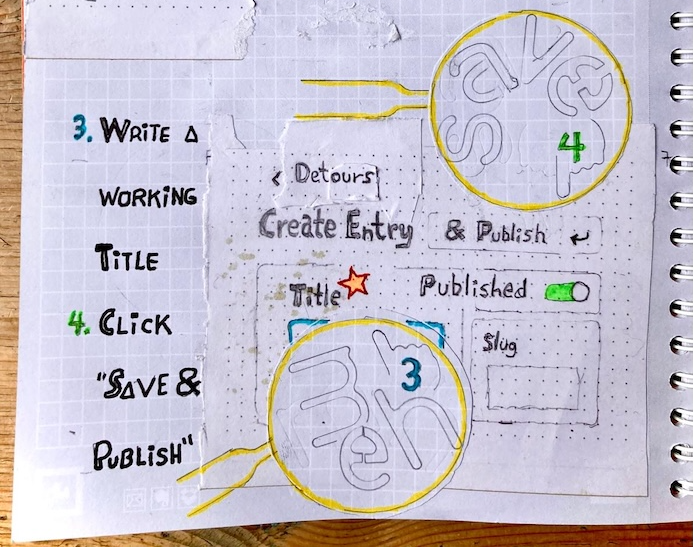 3. WRITE A
WORKING
TITLE
4. CLICK
"SAVE &
PUBLISH"
save
4
< Detours
Create Entry
& Publish ↵
Title
Published
Slug
3
meh
7